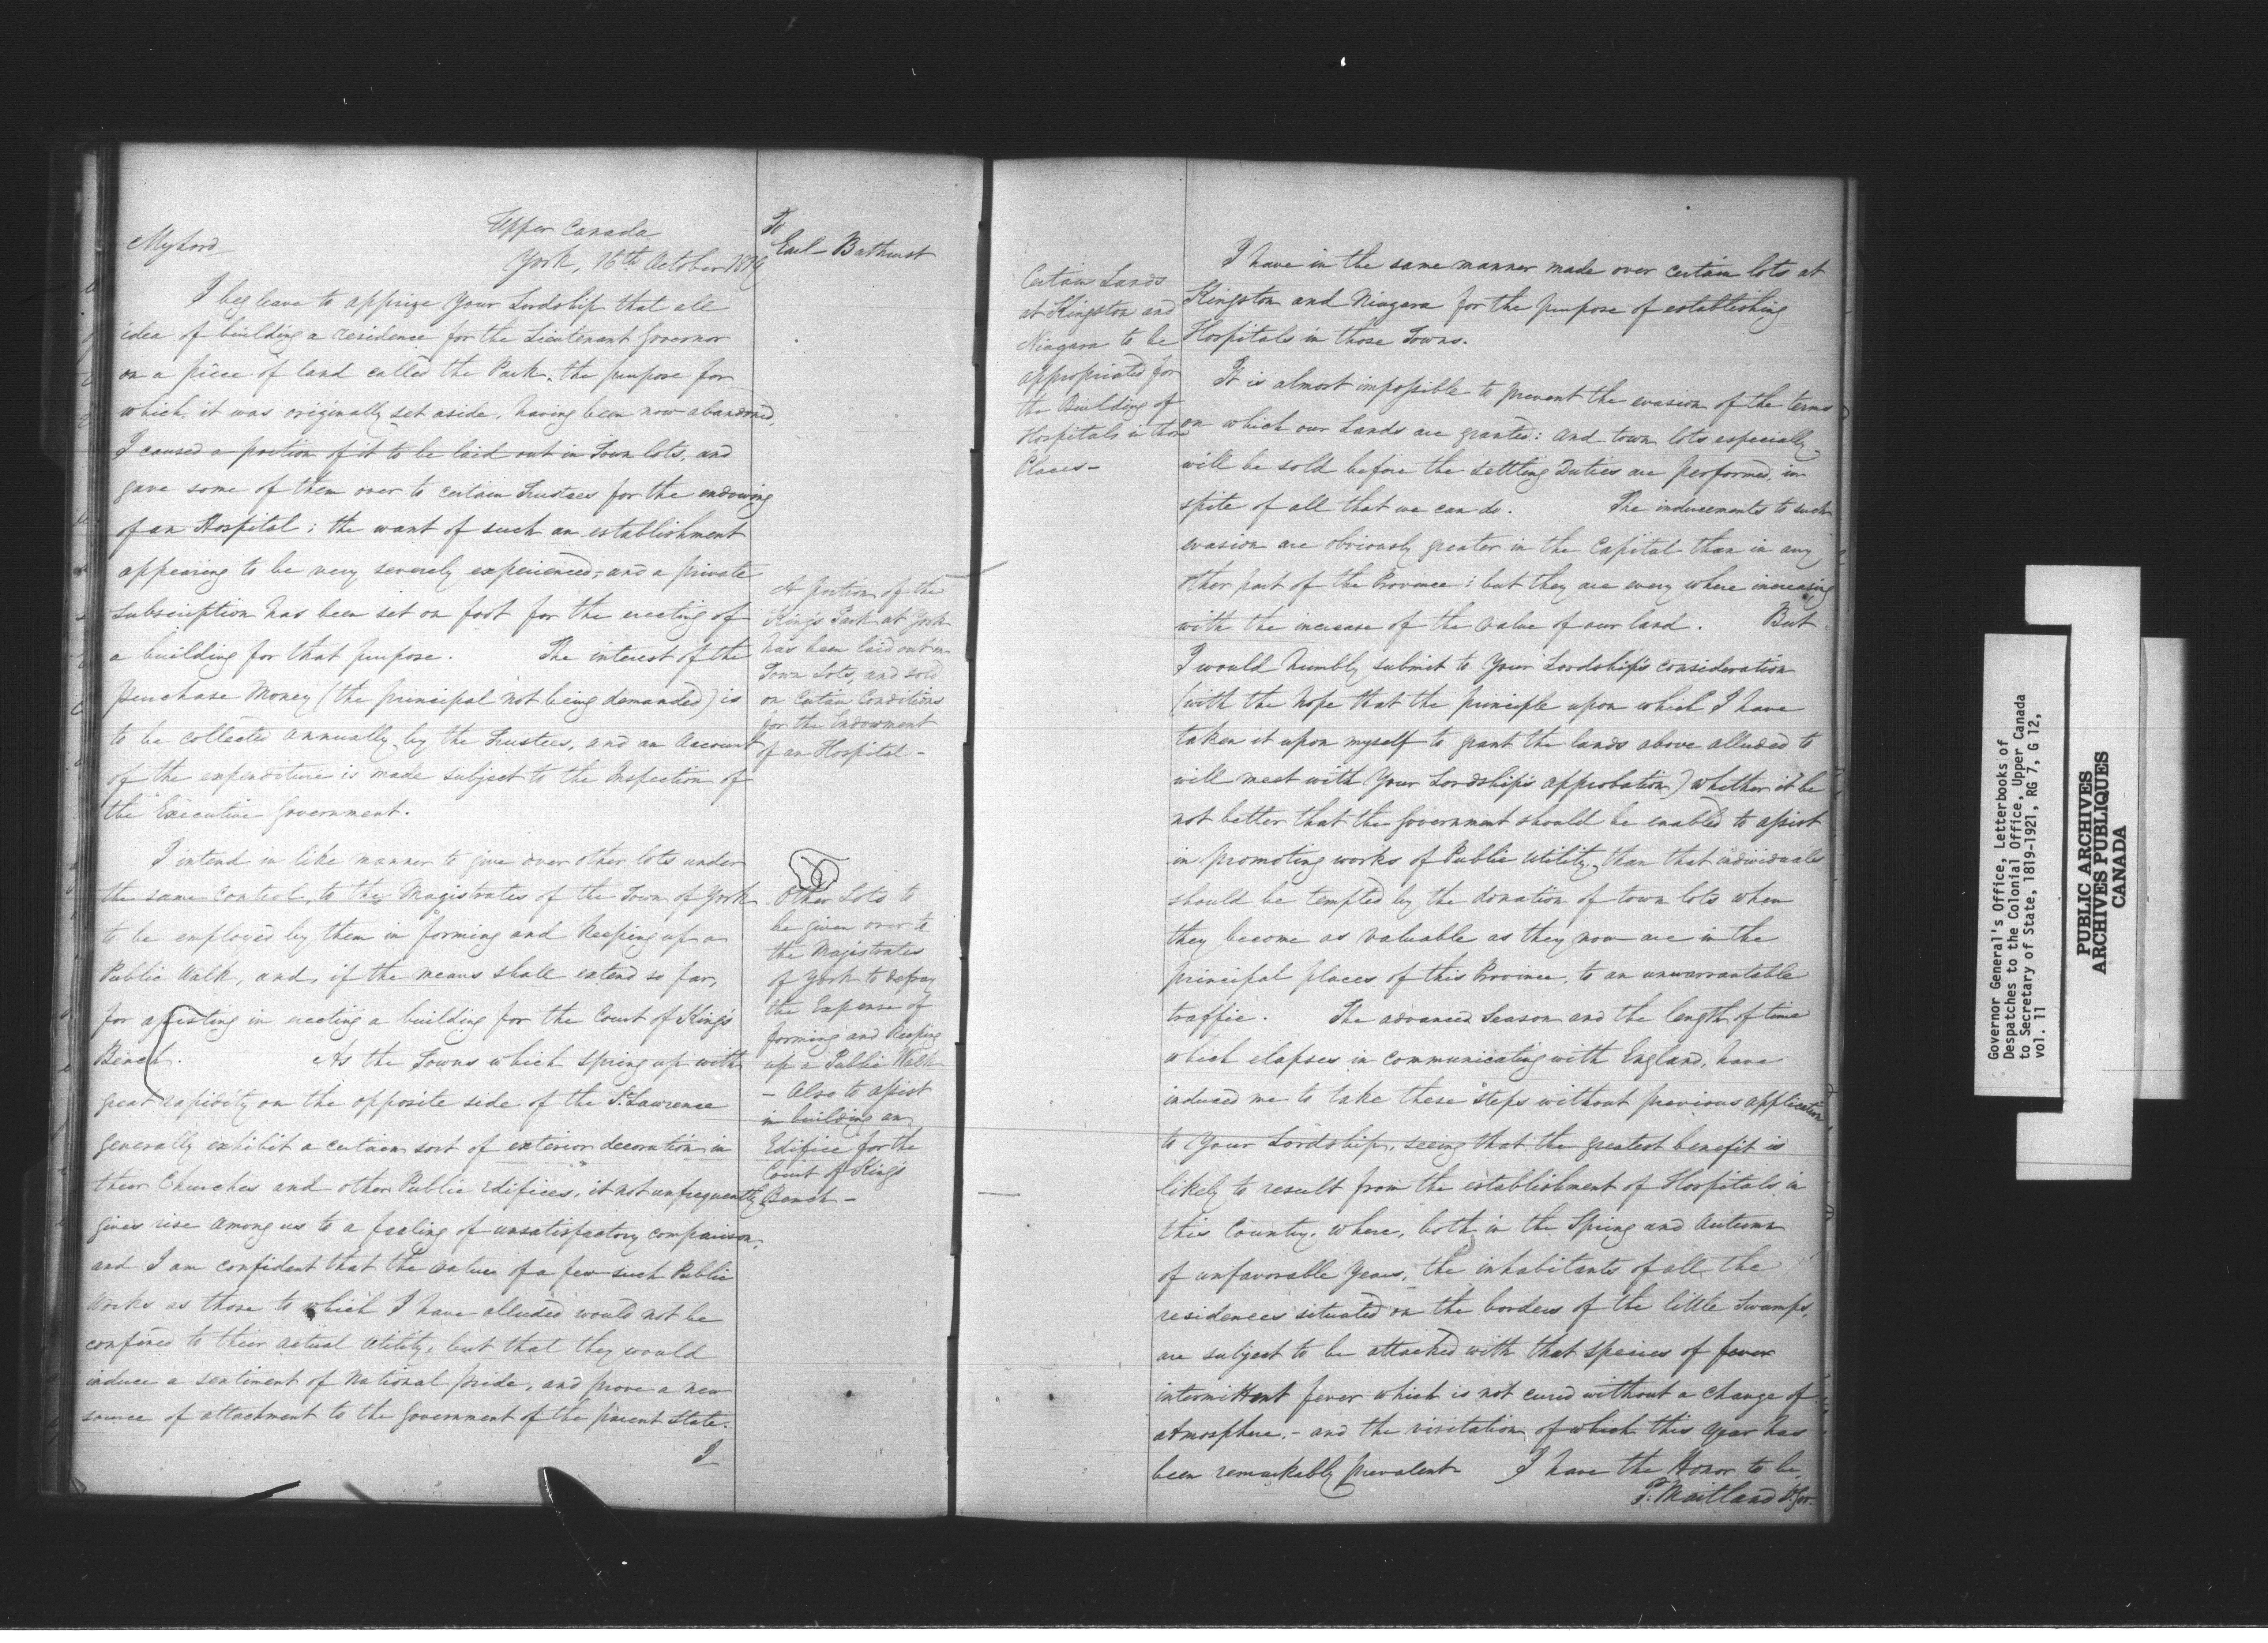 Upper Canada
York, 16th October 1819
My Lord
I beg leave to apprize Your Lordship that all
idea of building a residence for the Lieutenant Governor
on a piece of land called the Park, the purpose for
which it was originally set aside, having been now abandoned,
I caused a portion of it to be laid out in Town lots, and
gave some of them over to certain Trustees for the endowing
of an Hospital; the want of such an establishment
appearing to be very severely experienced; and a private
subscription has been set on foot for the erecting of
a building for that purpose. The interest of the
purchase Money (the principal not being demanded) is
to be collected annually by the Trustees, and an Account
of the expenditure is made subject to the Inspection of
the Executive Government.
I intend in like manner to give over other lots under
the same control, to the Magistrates of the Town of York
to be employed by them in forming and keeping up a
Public Walk, and, if the means shall extend so far,
for assisting in erecting a building for the Court of King's
Bench. As the Towns which spring up with
great rapidity on the opposite side of the St. Lawrence
generally exhibit a certain sort of exterior decoration in
their Churches and other Public Edifices, it not unfrequently
gives rise among us to a feeling of unsatisfactory comparison,
and I am confident that the value of a few such Public
Works as those to which I have alluded would not be
confined to their actual utility, but that they would
induce a sentiment of National pride, and prove a new
source of attachment to the Government of the parent State.
I
To
Earl Bathurst
A portion of the
King's Park at York
has been laid out in
Town Lots, and sold
on Certain Conditions
for the Endowment
of an Hospital -
Other Lots to
be given over to
the Magistrates
of York to defray
the Expense of
forming and keeping
up a Public Walk
- Also to assist
in building an
Edifice for the
Court of King's
Bench -
Certain Lands
at Kingston and
Niagara to be
appropriated for
the Building of
Hospitals in those
Places -
I have in the same manner made over certain lots at
Kingston and Niagara for the purpose of establishing
Hospitals in those Towns.
It is almost impossible to prevent the evasion of the terms
on which our Lands are granted: and town lots especially
will be sold before the settling Duties are performed, in
spite of all that we can do. The inducements to such
evasion are obviously greater in the Capital than in any
other part of the Province; but they are every where increasing
with the increase of the value of our land. But
I would humbly submit to Your Lordship's consideration
(with the hope that the principle upon which I have
taken it upon myself to grant the lands above alluded to
will meet with Your Lordship's approbation) whether it be
not better that the Government should be enabled to assist
in promoting works of Public Utility, than that individuals
should be tempted by the donation of town lots when
they become as valuable as they now are in the
principal places of this Province, to an unwarrantable
traffic. The advanced Season and the length of time
which elapses in communicating with England, have
induced me to take these steps without previous application
to Your Lordship, seeing that the greatest benefit is
likely to result from the establishment of Hospitals in
this Country, where, both in the Spring and Autumn
of unfavorable years, the inhabitants of all the
residences situated on the borders of the little Swamps,
are subject to be attacked with that species of fever
intermittent fever which is not cured without a change of
atmosphere, - and the visitation of which this year has
been remarkably prevalent. I have the Honor to be
P. Maitland Lt. Gov.
Governor General's Office, Letterbooks of
Despatches to the Colonial Office, Upper Canada
to Secretary of State, 1819-1921, RG 7, G 12,
vol. 11
PUBLIC ARCHIVES
ARCHIVES PUBLIQUES
CANADA